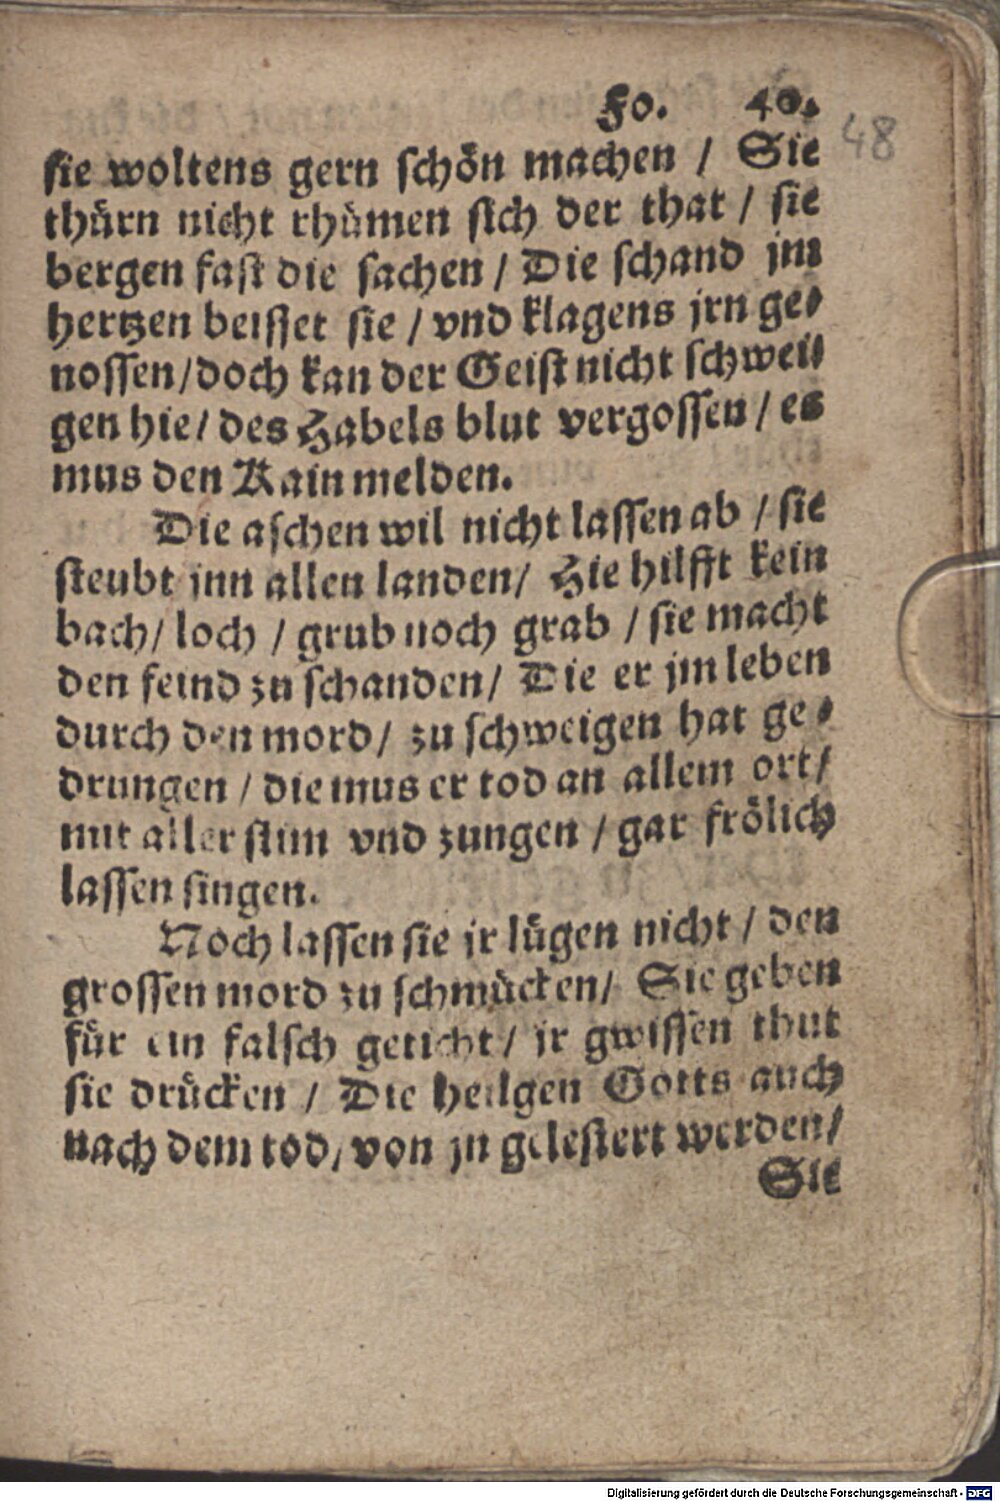 Fo. 40.
48
sie woltens gern schön machen / Sie
thürn nicht rhümen sich der that / sie
bergen fast die sachen / Die schand jm
hertzen beisset sie / vnd klagens jrn ge-
nossen / doch kan der Geist nicht schwei-
gen hie / des Habels blut vergossen / es
mus den Kain melden.
Die aschen wil nicht lassen ab / sie
steubt jnn allen landen / Hie hilfft kein
bach / loch / grub noch grab / sie macht
den feind zu schanden / Die er jm leben
durch den mord / zu schweigen hat ge-
drungen / die mus er tod an allem ort /
mit aller stim vnd zungen / gar frölich
lassen singen.
Noch lassen sie jr lügen nicht / den
grossen mord zu schmücken / Sie geben
für ein falsch geticht / jr gwissen thut
sie drücken / Die heilgen Gotts auch
nach dem tod / von jn gelestert werden /
Sie
Digitalisierung gefördert durch die Deutsche Forschungsgemeinschaft - DFG